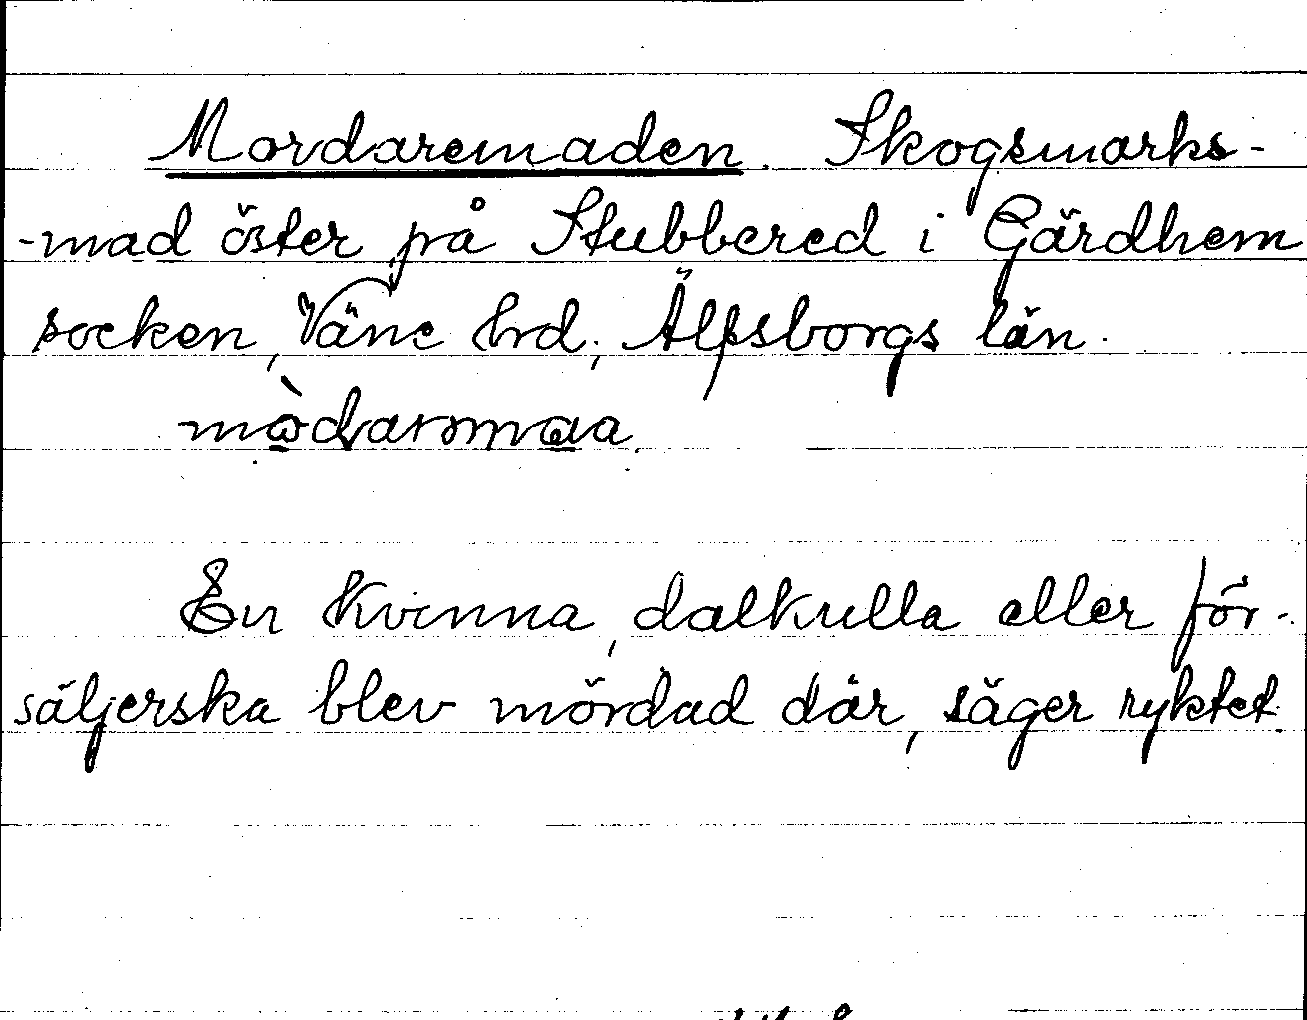 Mordaremaden. Skogsmarks-
-mad öster på Stubbered i Gärdhem
socken, Väne hrd, Älfsborgs län.
mòdarmaa.
En kvinna, dalkulla eller för-
säljerska blev mördad där, säger ryktet.